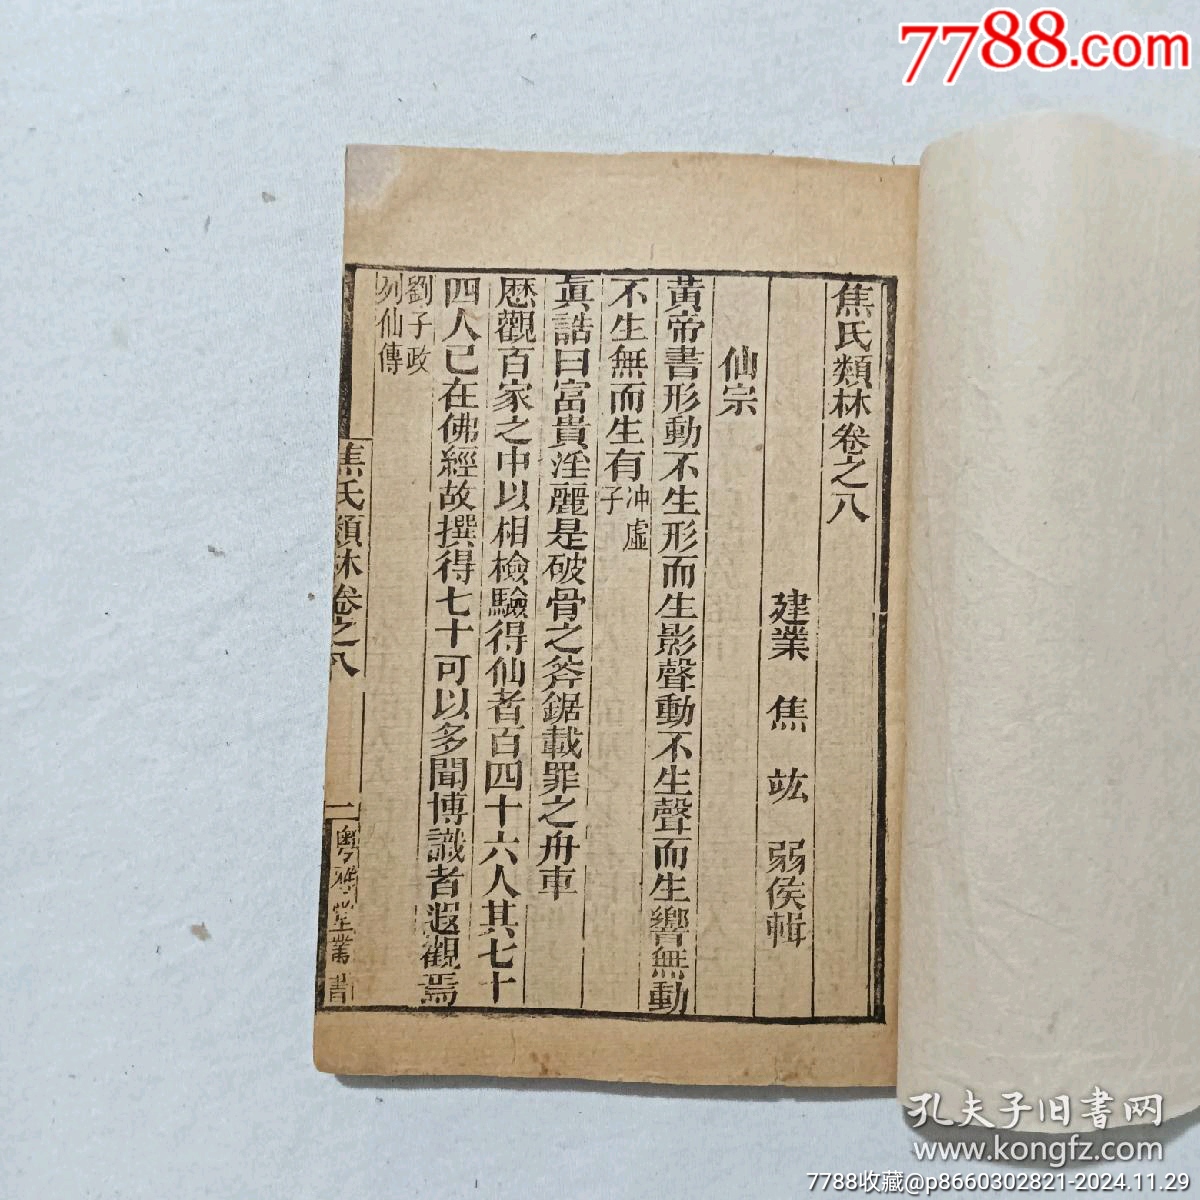 7788.com
焦氏類林卷之八
建業 焦 竑 弱侯輯
仙宗
黃帝書形動不生形而生影聲動不生聲而生響無動
不生無而生有冲虛子
眞誥曰富貴淫麗是破骨之斧鋸載罪之舟車
歷觀百家之中以相檢驗得仙者百四十六人其七十
四人已在佛經故撰得七十可以多聞博識者遐觀焉
劉子政
列仙傳
焦氏類林卷之八
一
粵雅堂叢書
孔夫子旧书网
www.kongfz.com
7788收藏@p8660302821-2024.11.29